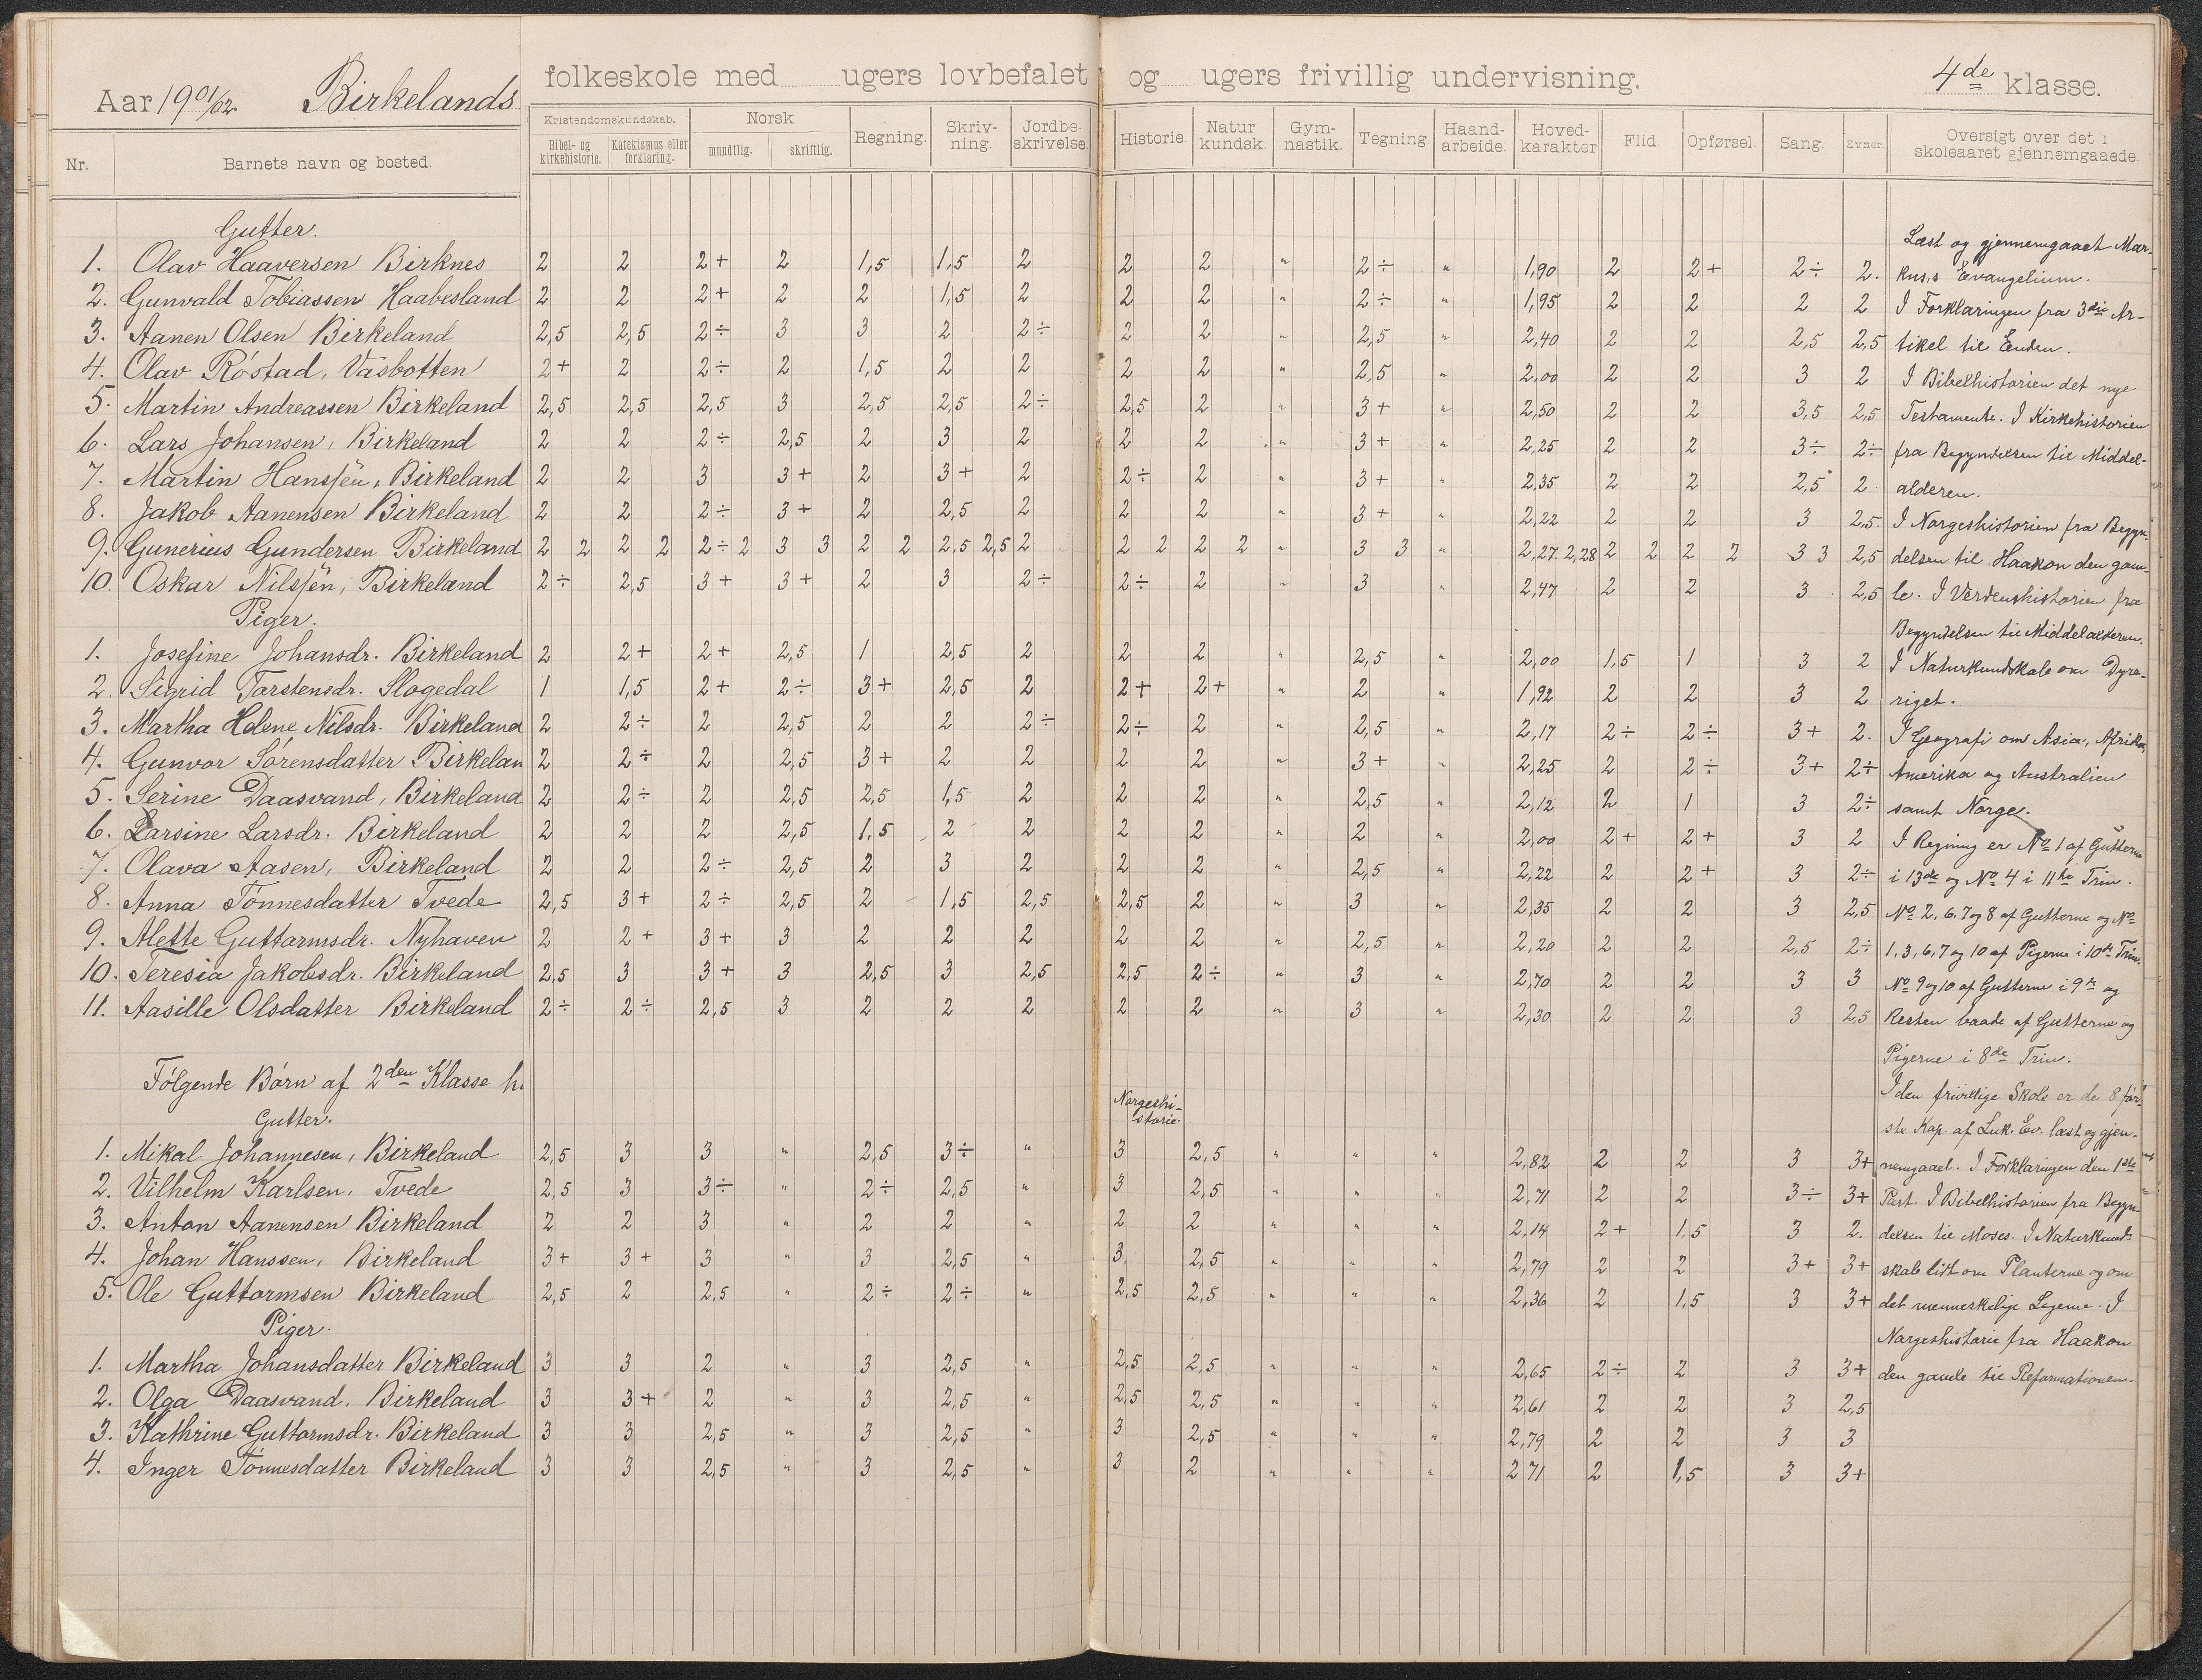 Aar 1901/02. Birkelands folkeskole med ugers lovbefalet og ugers frivillig undervisning. 4de klasse.
Nr. Barnets navn og bosted. Kristendomskundskab. Bibel- og kirkehistorie. Katekismus eller forklaring. Norsk mundtlig. skriftlig. Regning. Skriv-ning. Jordbe-skrivelse. Historie. Natur kundsk. Gym-nastik. Tegning Haand-arbeide. Hoved-karakter Flid. Opførsel. Sang. Evner. Oversigt over det i skoleaaret gjennemgaaede.
Gutter.
1. Olav Haaversen Birknes 2 2 2+ 2 1,5 1,5 2 2 2 " 2÷ " 1,90 2 2+ 2÷ 2.
2. Gunvald Tobiassen Haabesland 2 2 2+ 2 2 1,5 2 2 2 " 2÷ " 1,95 2 2 2 2
3. Aanen Olsen Birkeland 2,5 2,5 2÷ 3 3 2 2÷ 2 2 " 2,5 " 2,40 2 2 2,5 2,5
4. Olav Róstad, Vasbotten 2+ 2 2÷ 2 1,5 2 2 2 2 " 2,5 " 2,00 2 2 3 2
5. Martin Andreassen Birkeland 2,5 2,5 2,5 3 2,5 2,5 2÷ 2,5 2 " 3+ " 2,50 2 2 3,5 2,5
6. Lars Johansen, Birkeland 2 2 2÷ 2,5 2 3 2 2 2 " 3+ " 2,25 2 2 3÷ 2÷
7. Martin Hanssen, Birkeland 2 2 3 3+ 2 3+ 2 2÷ 2 " 3+ " 2,35 2 2 2,5 2
8. Jakob Aanensen Birkeland 2 2 2÷ 3+ 2 2,5 2 2 2 " 3+ " 2,22 2 2 3 2,5.
9. Gunerius Gundersen Birkeland 2 2 2 2 2÷ 2 3 3 2 2 2,5 2,5 2 2 2 2 2 " 3 3 " 2,27 2,28 2 2 2 2 3 3 2,5
10. Oskar Nilssen, Birkeland 2÷ 2,5 3+ 3+ 2 3 2÷ 2÷ 2 " 3 " 2,47 2 2 3 2,5
Piger.
1. Josefine Johansdr. Birkeland 2 2+ 2+ 2,5 1 2,5 2 2 2 " 2,5 " 2,00 1,5 1 3 2
2. Sigrid Tarstensdr. Slogedal 1 1,5 2+ 2÷ 3+ 2,5 2 2+ 2+ " 2 " 1,92 2 2 3 2
3. Martha Helene Nilsdr. Birkeland 2 2÷ 2 2,5 2 2 2÷ 2÷ 2 " 2,5 " 2,17 2÷ 2÷ 3+ 2.
4. Gunvor Sórensdatter Birkelan 2 2÷ 2 2,5 3+ 2 2 2 2 " 3+ " 2,25 2 2÷ 3+ 2÷
5. Serine Daasvand, Birkeland 2 2÷ 2 2,5 2,5 1,5 2 2 2 " 2,5 " 2,12 2 1 3 2÷
6. Larsine Larsdr. Birkeland 2 2 2 2,5 1,5 2 2 2 2 " 2 " 2,00 2+ 2+ 3 2
7. Olava Aasen, Birkeland 2 2 2÷ 2,5 2 3 2 2 2 " 2,5 " 2,22 2 2+ 3 2÷
8. Anna Tónnesdatter Tvede 2,5 3+ 2÷ 2,5 2 1,5 2,5 2,5 2 " 3 " 2,35 2 2 3 2,5
9. Alette Guttormsdr. Nyhaven 2 2+ 3+ 3 2 2 2 2 2 " 2,5 " 2,20 2 2 2,5 2÷
10. Teresia Jakobsdr. Birkeland 2,5 3 3+ 3 2,5 3 2,5 2,5 2÷ " 3 " 2,70 2 2 3 3
11. Aasille Olsdatter Birkeland 2÷ 2÷ 2,5 3 2 2 2 2 2 " 3 " 2,30 2 2 3 2,5
Fólgende Bórn af 2den Klasse h.
Gutter. Norgeshi-storie.
1. Mikal Johannesen, Birkeland 2,5 3 3 " 2,5 3÷ " 3 2,5 " " " 2,82 2 2 3 3+
2. Vilhelm Karlsen, Tvede 2,5 3 3÷ " 2÷ 2,5 " 3 2,5 " " " 2,71 2 2 3÷ 3+
3. Anton Aanensen Birkeland 2 2 3 " 2 2 " 2 2 " " " 2,14 2+ 1,5 3 2.
4. Johan Hanssen, Birkeland 3+ 3+ 3 " 3 2,5 " 3. 2,5 " " " 2,79 2 2 3+ 3+
5. Ole Guttormsen Birkeland 2,5 2 2,5 " 2÷ 2÷ " 2,5 2,5 " " " 2,36 2 1,5 3 3+
Piger.
1. Martha Johansdatter Birkeland 3 3 2 " 3 2,5 " 2,5 2,5 " " " 2,65 2÷ 2 3 3+
2. Olga Daasvand, Birkeland 3 3+ 2 " 3 2,5 " 2,5 2,5 " " " 2,61 2 2 3 2,5
3. Kathrine Guttormsdr. Birkeland 3 3 2,5 " 3 2,5 " 3 2,5 " " " 2,79 2 2 3 3
4. Inger Tónnesdatter Birkeland 3 3 2,5 " 3 2,5 " 3 2 " " " 2 71 2 1,5 3 3+
Læst og gjennemgaaet Mar-
kus,s Evangelium.
I Forklaringen fra 3die Ar-
tikel til Enden.
I Bibelhistorien det nye
Testamente. I Kirkehistorien
fra Begyndelsen til Middel-
alderen.
I Norgeshistorien fra Begyn-
delsen til Haakon den gam-
le. I Verdenshistorien fra
Begyndelsen til Middelalderen.
I Naturkundskab om Dyre-
riget.
I Geografi om Asia, Afrika,
Amerika og Australien
samt Norge.
I Regning er No 1 af Gutterne
i 13de og No 4 i 11te Trin.
No 2, 6, 7 og 8 af Gutterne og No
1, 3, 6, 7 og 10 af Pigerne i 10de Trin.
No 9 og 10 af Gutterne i 9de og
Resten baade af Gutterne og
Pigerne i 8de Trin.
I den frivillige Skole er de 8 fór-
ste Kap. af Luk. Ev. læst og gjen-
nemgaaet. I Forklaringen den 1ste
Part. I Bibelhistorien fra Begyn-
delsen til Moses. I Naturkund-
skab lidt om Planterne og om
det menneskelige Legeme. I
Norgeshistorie fra Haakon
den gamle til Reformationen.